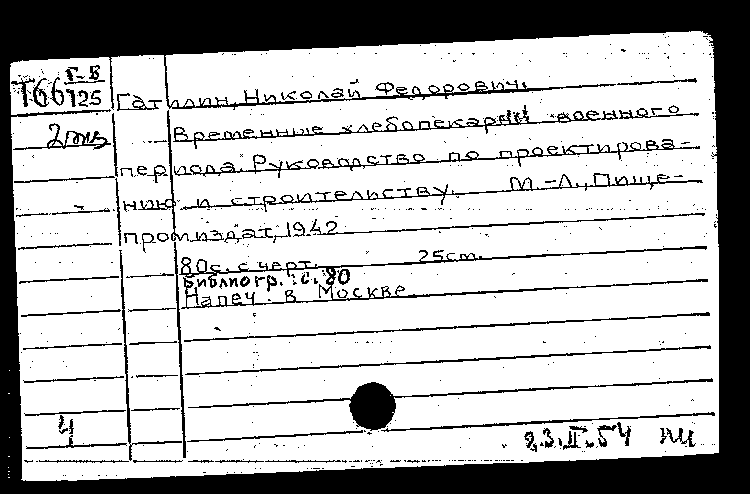 Г-Б
Т66
125 Гатилин, Николай Федорович.
2 экз
Временные хлебопекарни военного
периода. Руководство по проектирова-
нию и строительству. М.-Л., Пище-
промиздат, 1942
80с. с черт. 25см.
Библиогр.: с. 80
Напеч. в Москве
4
23.II.54